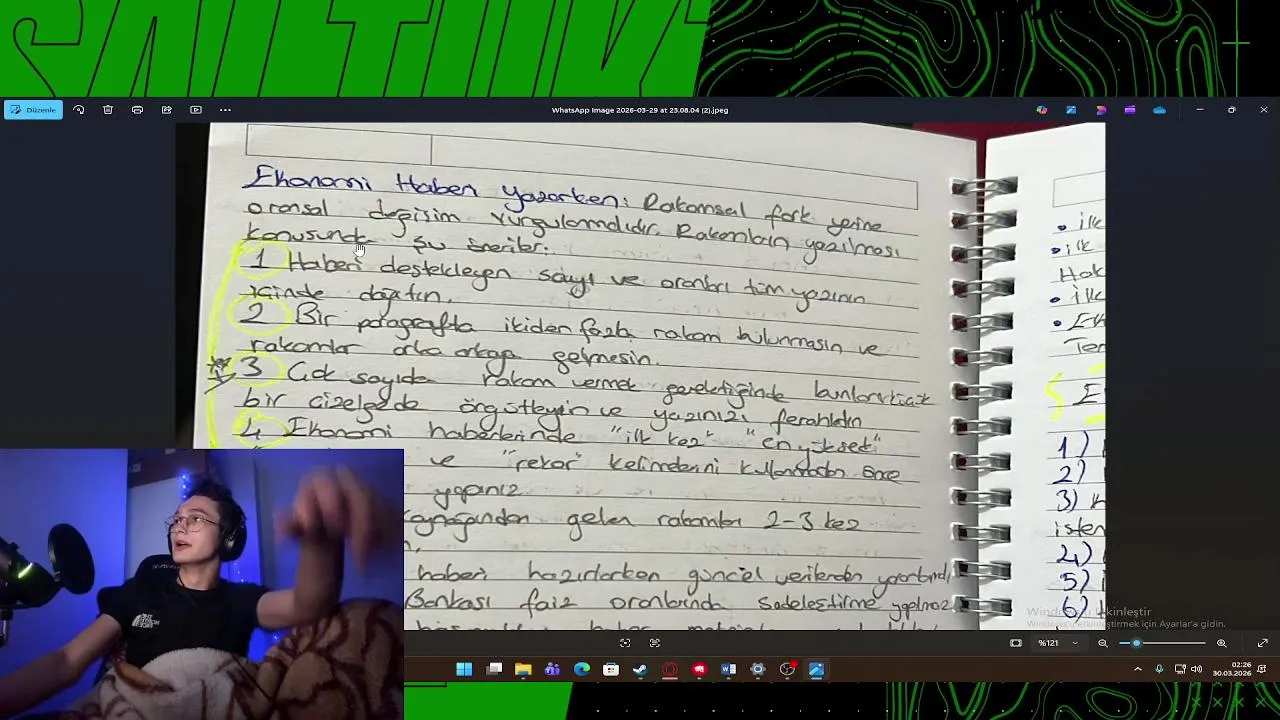 Düzenle
WhatsApp Image 2026-03-29 at 23.08.04 (2).jpeg
Ekonomi Haberi Yazarken: Rakamsal fark yerine
oransal değişim vurgulamalıdır. Rakamların yazılması
konusunda şu öneriler:
1 Haberi destekleyen sayı ve oranları tüm yazının
içinde dağıtın.
2 Bir paragrafta ikiden fazla rakam bulunmasın ve
rakamlar arka arkaya gelmesin.
3 Çok sayıda rakam vermek gerektiğinde bunları
bir çizelgede örgütleyin ve yazınızı ferahlatın
4 Ekonomi haberlerinde "ilk kez" "en yüksek"
ve "rekor" kelimelerini kullanmadan önce
yapınız
kaynağından gelen rakamları 2-3 kez
haberi hazırlarken güncel verilerden yararlanılı
Bankası faiz oranlarında sadeleştirme
haber
• ilk
• ilk
Hak
• ilk
Ter
E
1)
2)
3) K
ister
4)
5)
6)
Windows'u Etkinleştir
Windows'u etkinleştirmek için Ayarlar'a gidin.
%121
THE NORTH FACE
02:26
30.03.2026